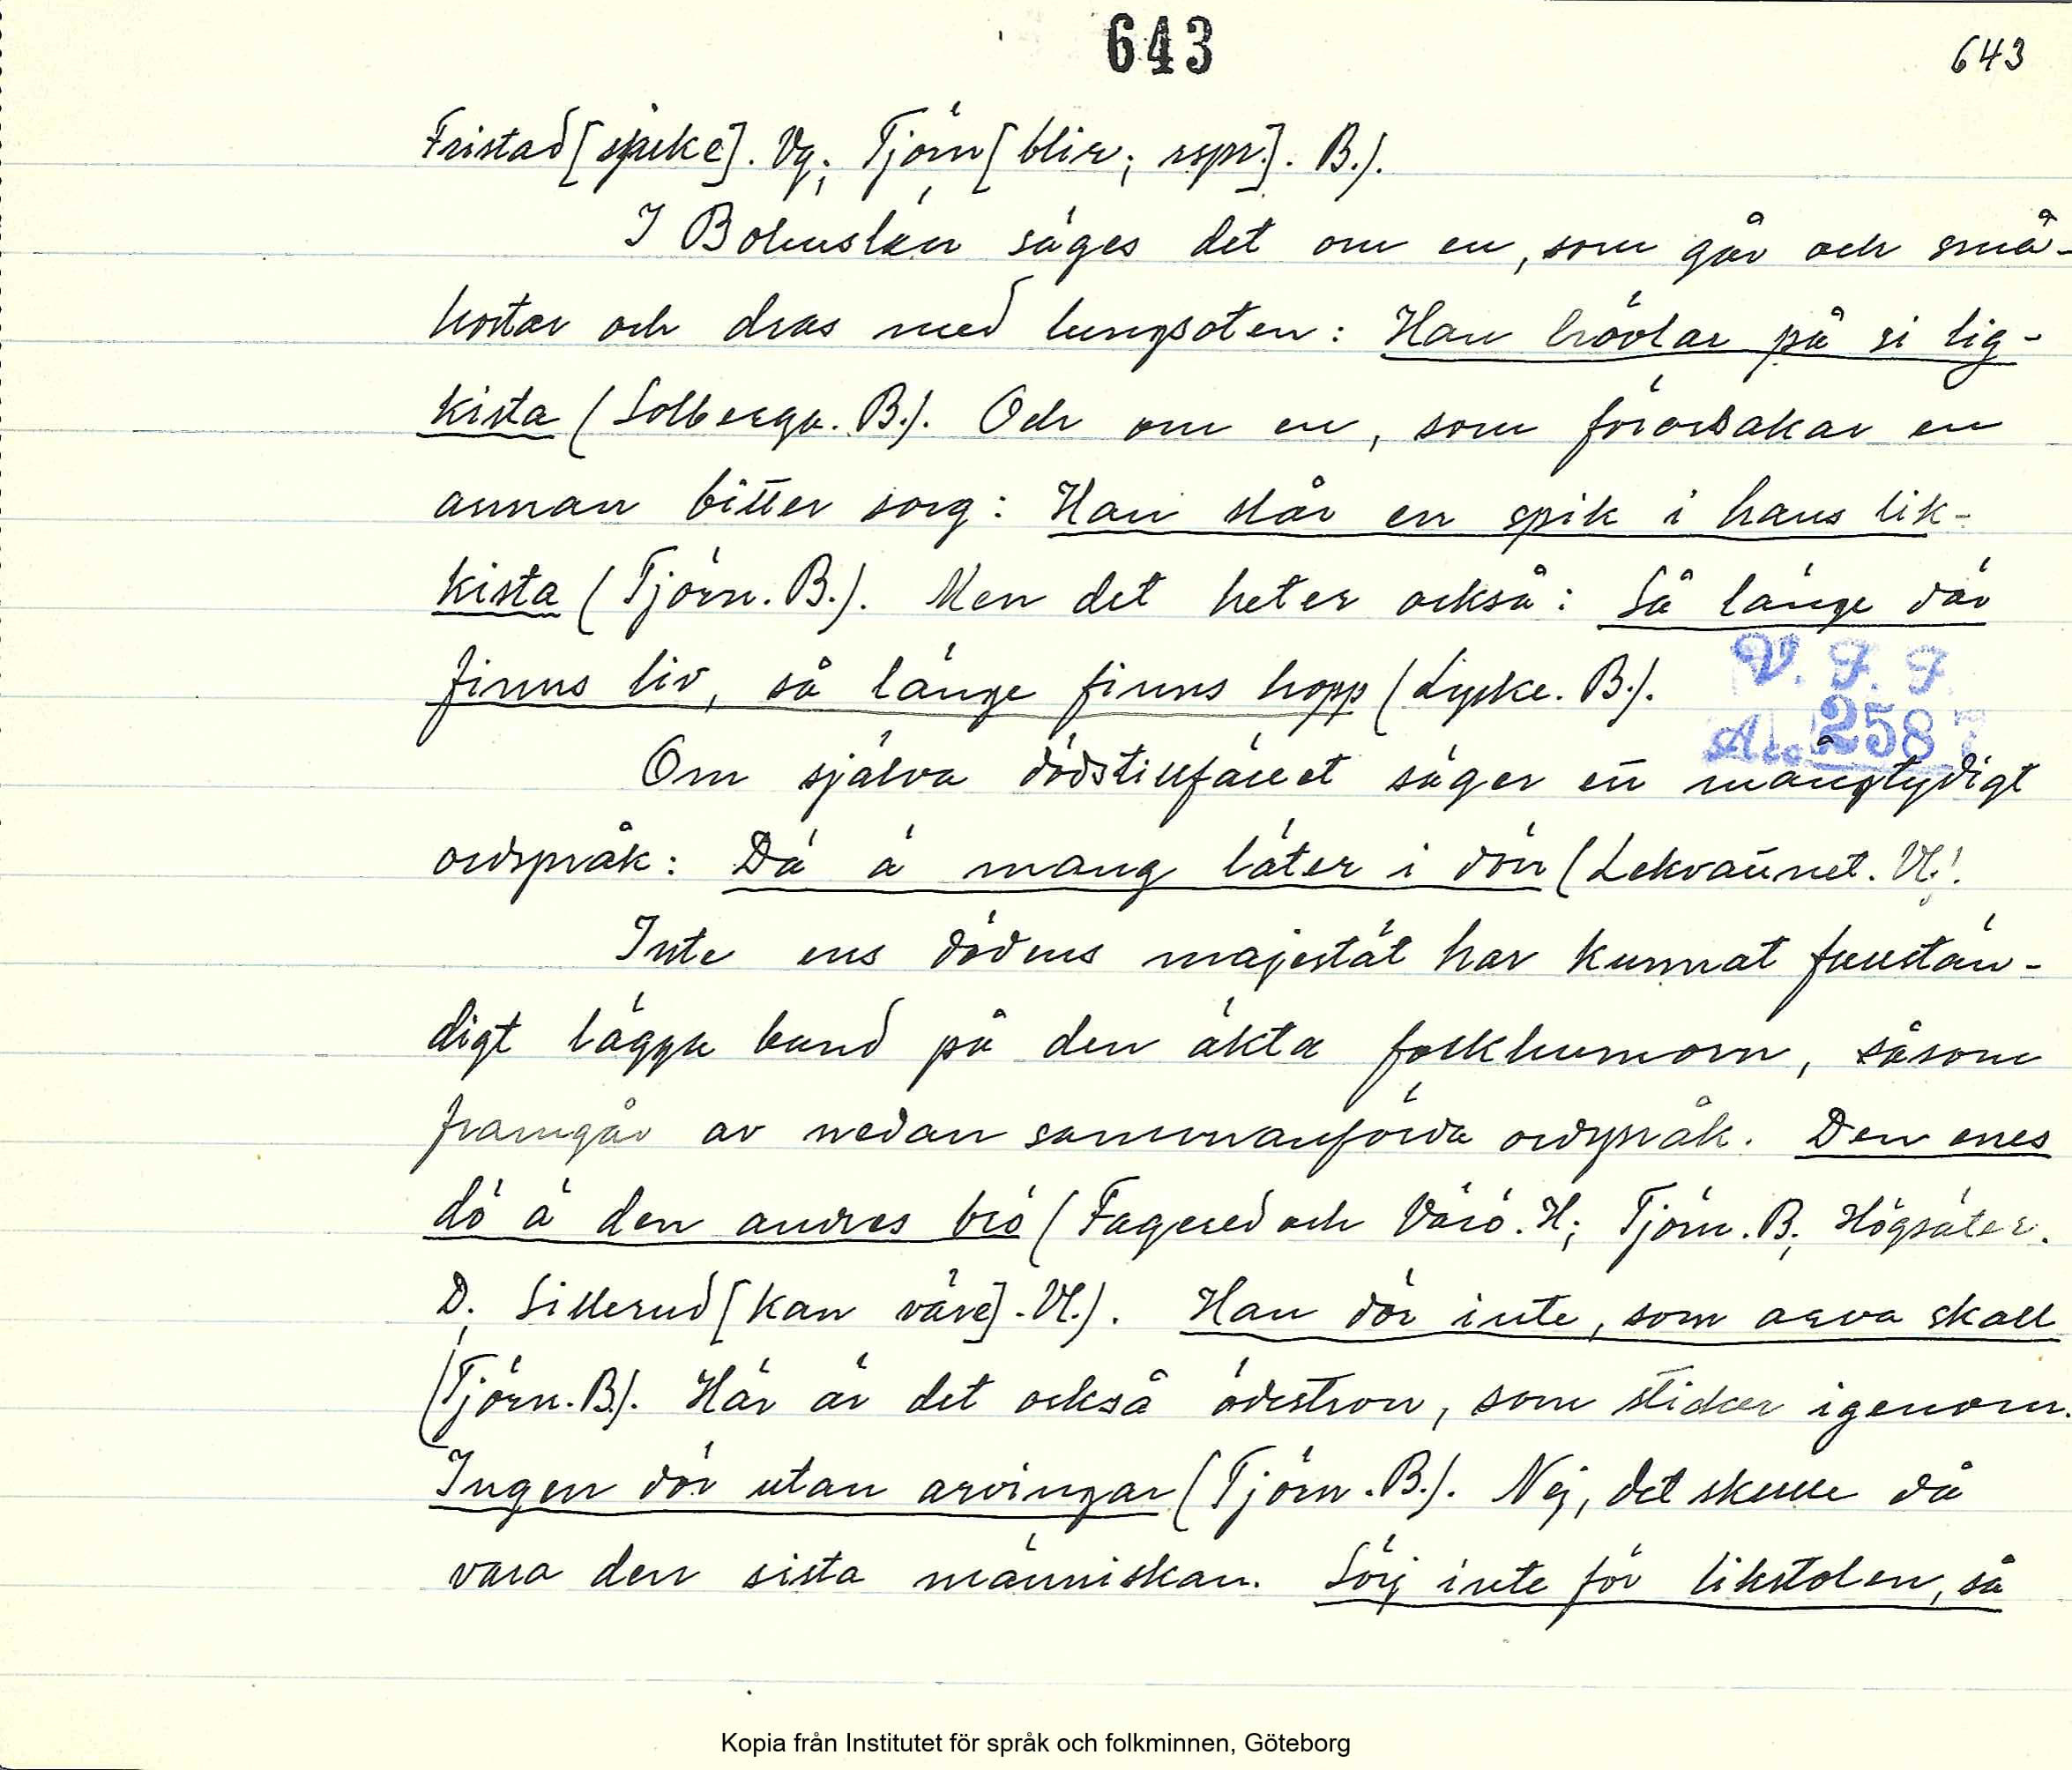 643
643
Fristad [spike]. Vg; Tjörn [blir; rspr.]. B.).
I Bohuslän säges det om en, som går och små-
hostar och dras med lungsoten: Han hövlar på si lig-
kista (Solberga. B.). Och om en, som förorsakar en
annan bitter sorg: Han slår en spik i hans lik-
kista (Tjörn. B.). Men det heter också: Så länge där
finns liv, så länge finns hopp (Lycke. B.).
V. F. F.
Acc. 2587
Om själva dödstillfället säger ett mångtydigt
ordspråk: Dä ä mang läter i dön (Lekvattnet. Vl.).
Inte ens dödens majestät har kunnat fullstän-
digt lägga band på den äkta folkhumorn, såsom
framgår av nedan sammanförda ordspråk. Den enes
dö ä den andres brö (Fagered och Värö. H; Tjörn. B; Högsäter.
D; Sillerud [kan väre]. Vl.). Han dör inte, som arva skall
(Tjörn. B.). Här är det också ödestron, som sticker igenom.
Ingen dör utan arvingar (Tjörn. B.). Nej, det skulle då
vara den sista människan. Sörj inte för likstolen, så
Kopia från Institutet för språk och folkminnen, Göteborg